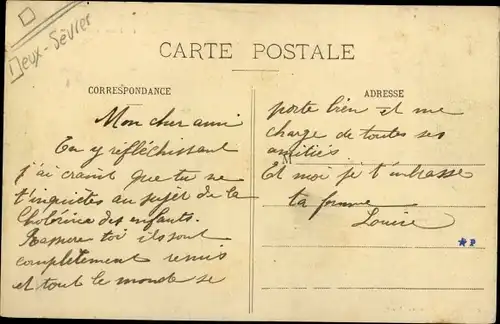 Deux-Sèvres
CARTE POSTALE
CORRESPONDANCE
Mon cher ami
En y réfléchissant
j'ai craint que tu ne
t'inquiètes au sujet de la
Cholérine des enfants.
Rassure toi ils sont
complètement remis
et tout le monde se
ADRESSE
porte bien et me
charge de toutes ses
amitiés
M
Et moi je t'embrasse
ta femme
Louise
★P